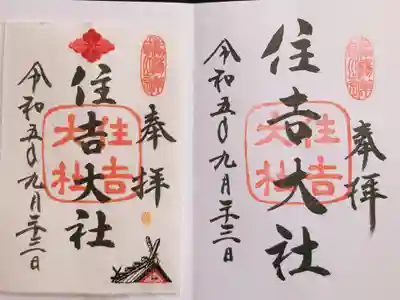 奉拝
住吉大社
住吉大社
令和五年九月二十三日
奉拝
住吉大社
住吉大社
令和五年九月二十三日